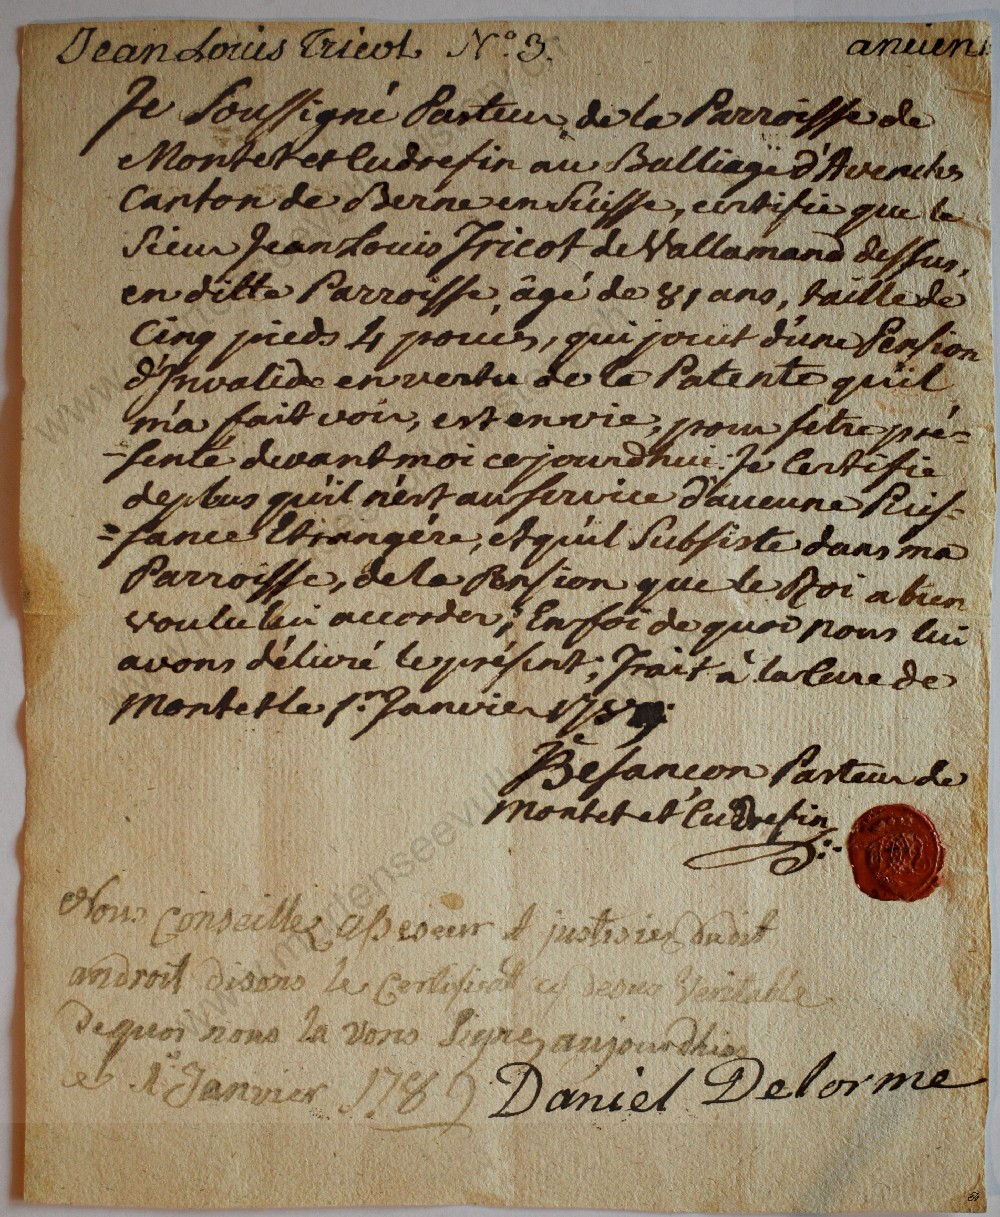 Jean Louis Tricot N.º 3. anciens
Je Soussigné Pasteur, de la Parroisse de
Montet et Cudrefin au Balliage d'Avenches
Canton de Berne en Suisse, certifie que le
Sieur Jean Louis Tricot de Vallamand dessus,
en ditte Parroisse, âgé de 81 ans, taille de
Cinq pieds 4 pouces, qui jouit d'une Pension
d'Invalide en vertu de la Patente qu'il
m'a fait voir, est en vie, pour s'etre pré=
=senté devant moi ce jourdhui. Je Certifie
de plus qu'il n'est au service d'aucune Puis=
=sance Etrangére, et qu'il Subsiste dans ma
Parroisse, de la Pension que le Roi a bien
voulu lui accorder; En foi de quoi nous lui
avons délivré le présent; Fait à la Cure de
Montet le 1.er Janvier 1789.
Besançon Pasteur de
Montet et Cudrefin
Nous Conseiller asseseur et justisier dudit
androit disons le Certificat cy desus Veritable
de quoi nous la vons Signe aujourdhui
ce 1.er Janvier 1789 Daniel Delorme